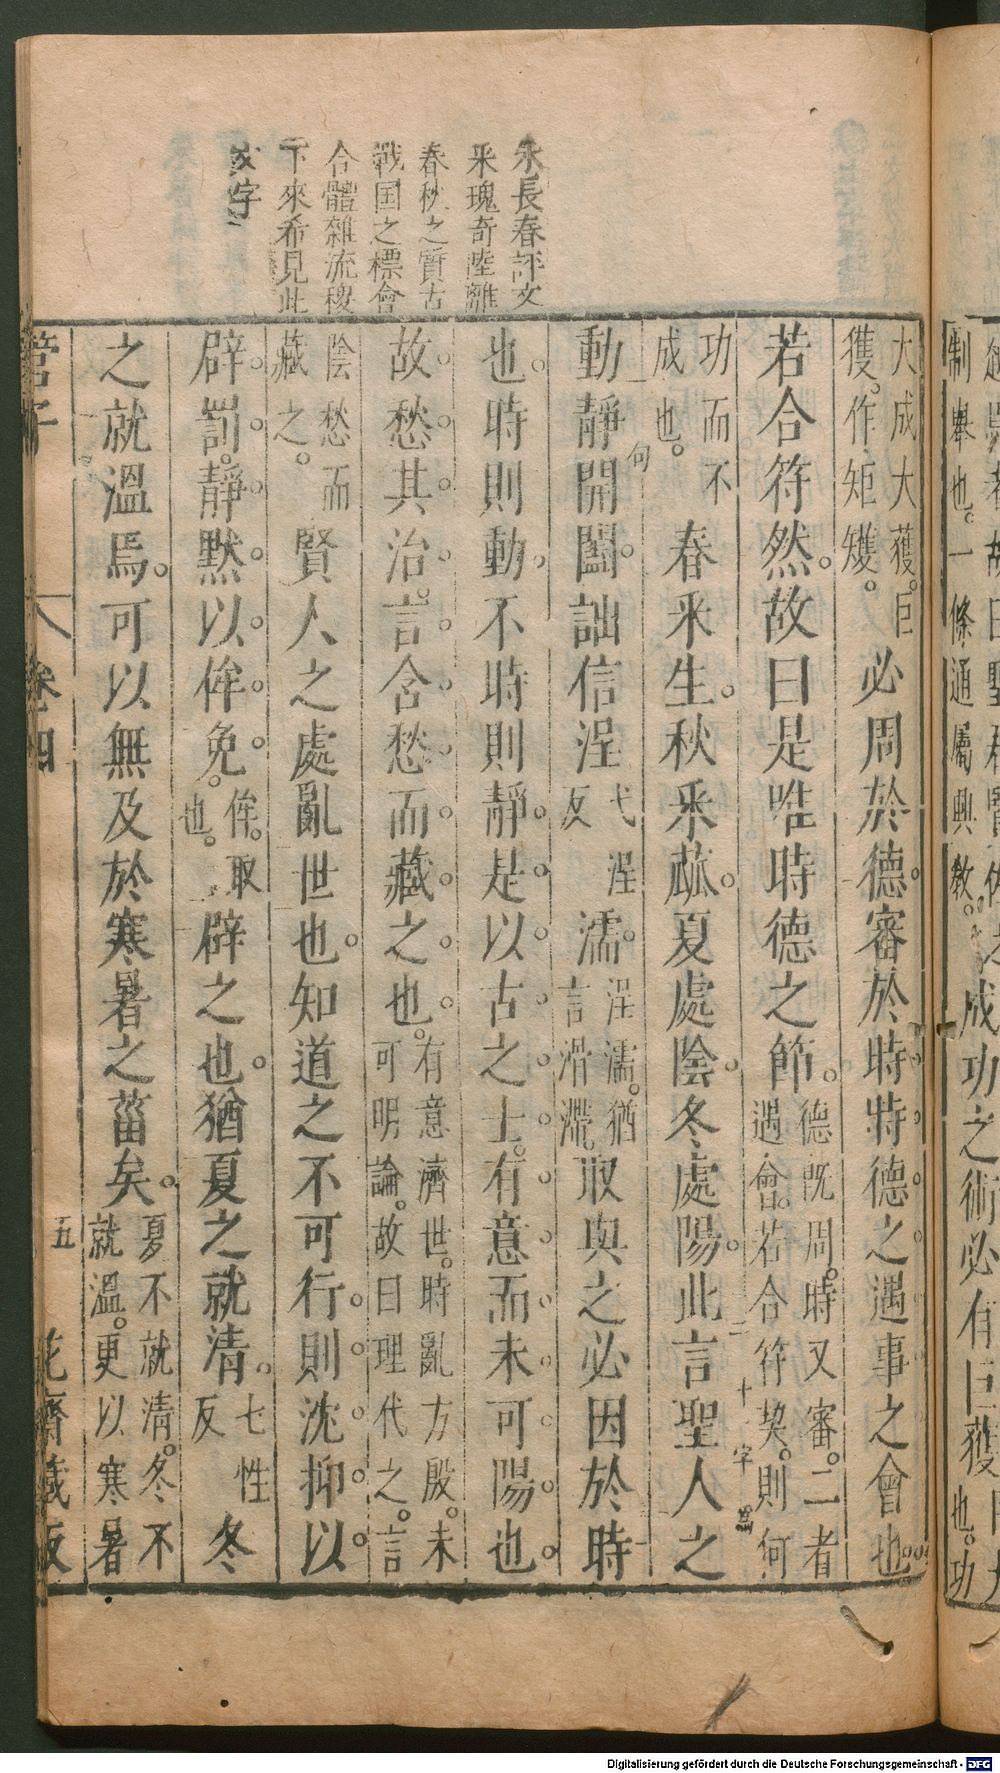 朱長春評文
采瑰奇陸離
春秋之質古
戰国之標會
合體雜流稷
下來希見此
文字
大成大獲巨
獲。作矩矱。
必周於德審於時時德之遇事之會也
若合符然。故曰是唯時德之節。
德既周。時又審。二者
遇會。若合符契。則何
功而不
成也。
春采生。秋采蓏。夏處陰。冬處陽。此言聖人之
動靜開闔。詘信浧
弋浧
反
濡。
浧濡。猶
言滑滯。
取與之必因於時
也。時則動。不時則靜。是以古之士。有意而未可陽也。
故愁其治。言含愁而藏之也。
有意濟世。時亂方殷。未
可明論。故曰理代之。言
陰愁而
藏之。
賢人之處亂世也。知道之不可行。則沈抑以
辟罰。靜默以侔免。
侔。取
也。
辟之也。猶夏之就凊。
七性
反
冬
之就溫焉。可以無及於寒暑之菑矣。
夏不就凊。冬不
就溫。更以寒暑
管子
卷四
五
花齋藏板
句
二十一字為
制舉也。一條通屬興教。
成功之術必有巨獲
也。功
Digitalisierung gefördert durch die Deutsche Forschungsgemeinschaft - DFG